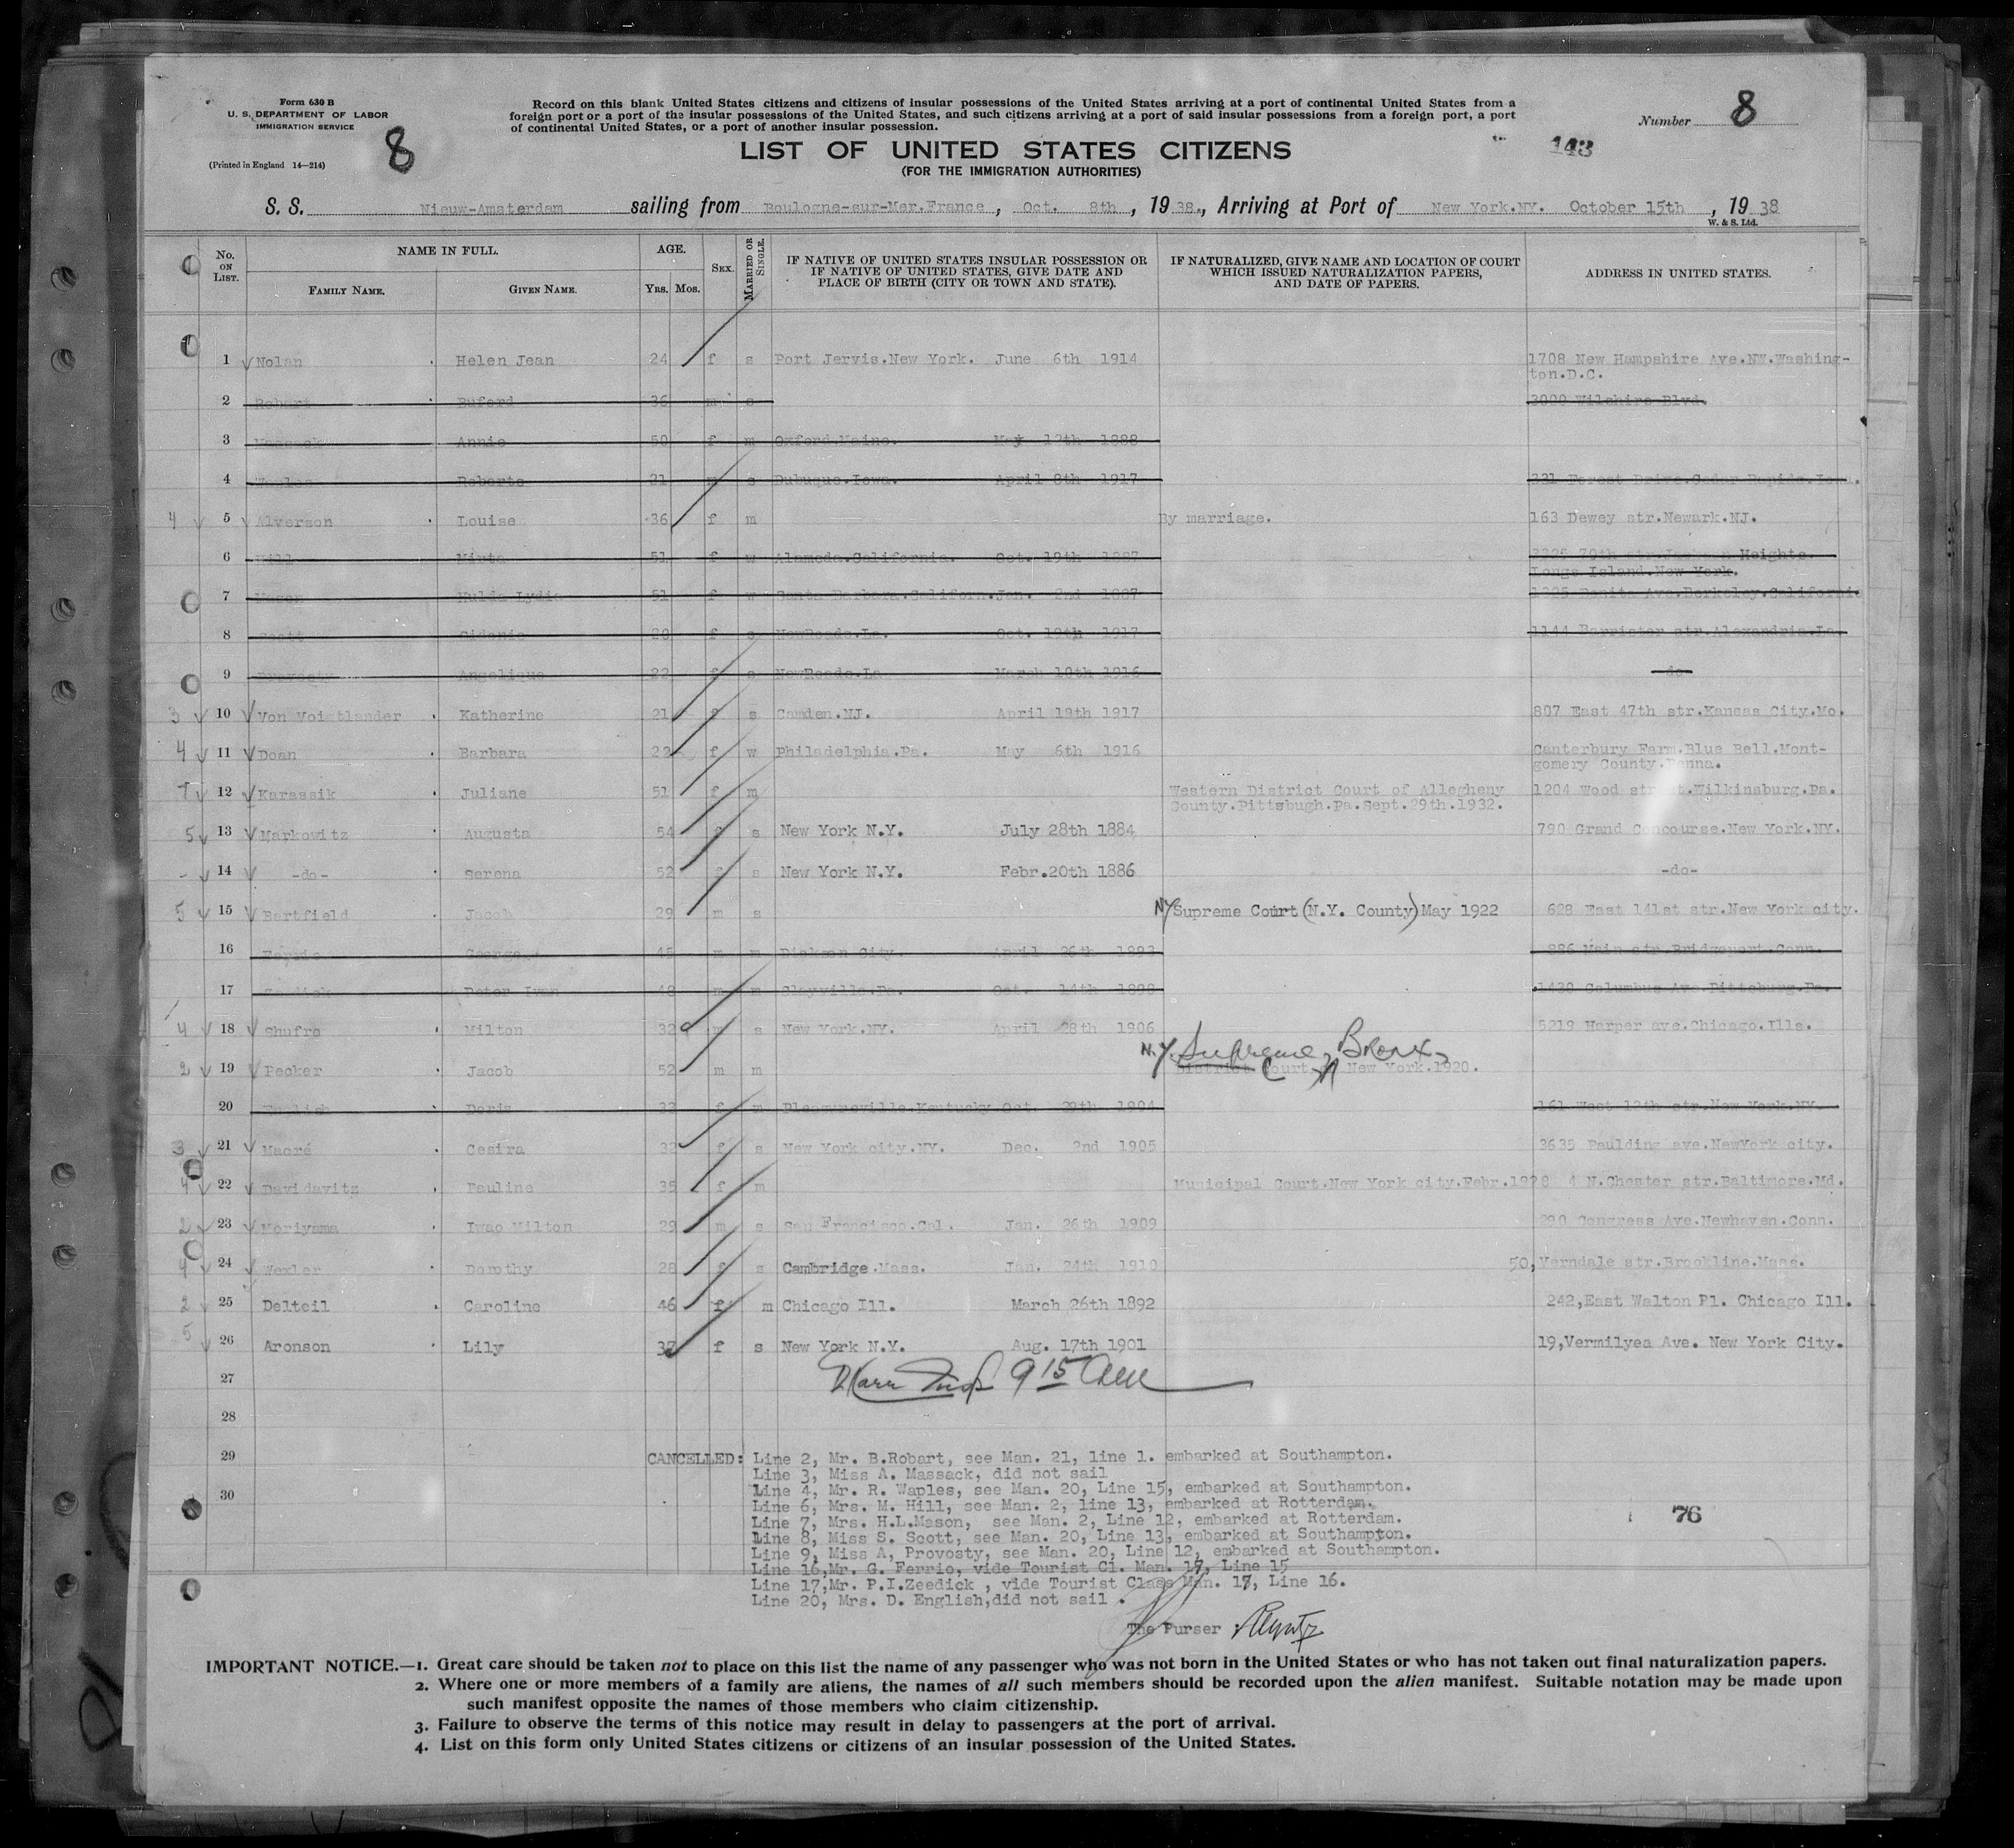 Form 630 B
U. S. DEPARTMENT OF LABOR
IMMIGRATION SERVICE
(Printed in England 14—214)
8
Record on this blank United States citizens and citizens of insular possessions of the United States arriving at a port of continental United States from a
foreign port or a port of the insular possessions of the United States, and such citizens arriving at a port of said insular possessions from a foreign port, a port
of continental United States, or a port of another insular possession.
Number 8
143
LIST OF UNITED STATES CITIZENS
(FOR THE IMMIGRATION AUTHORITIES)
S. S. Nieuw-Amsterdam sailing from Boulogne-sur-Mer.France, Oct. 8th, 1938., Arriving at Port of New York.NY. October 15th, 1938
W. & S. Ltd.
No. ON LIST. NAME IN FULL. FAMILY NAME. GIVEN NAME. AGE. YRS. MOS. SEX. MARRIED OR SINGLE.
IF NATIVE OF UNITED STATES INSULAR POSSESSION OR
IF NATIVE OF UNITED STATES, GIVE DATE AND
PLACE OF BIRTH (CITY OR TOWN AND STATE).
IF NATURALIZED, GIVE NAME AND LOCATION OF COURT
WHICH ISSUED NATURALIZATION PAPERS,
AND DATE OF PAPERS.
ADDRESS IN UNITED STATES.
1 Nolan Helen Jean 24 f s Port Jervis.New York. June 6th 1914 1708 New Hampshire Ave.NW.Washing-
ton.D.C.
2 Robart Buford 36 m s 3000 Wilshire Blvd.
3 Massack Annie 50 f m Oxford.Maine. May 12th 1888
4 Waples Roberts 21 m s Dubuque.Iowa. April 8th 1917 Forest Drive.Cedar Rapids.Iowa.
5 Alverson Louise 36 f m By marriage. 163 Dewey str.Newark.NJ.
6 Hill 51 f w Alameda.California. Oct. 19th 1887 Heights.
Longs Island.New York.
7 Mason Hulda Lydia 51 f w Santa Barbara.Californ.Jan. 2nd 1887 Ave.Berkeley.California
8 Scott Sidonie 20 f s NewRoads.La. Oct. 19th 1917 1144 Barrister str.Alexandria.La.
9 Provosty Angelique 22 f s NewRoads.La March 18th 1916 -do-
3 10 Von Voigtlander Katherine 21 f s Camden.NJ. April 19th 1917 807 East 47th str.Kansas City.Mo.
4 11 Doan Barbara 22 f w Philadelphia.Pa. May 6th 1916 Canterbury Farm.Blue Bell.Mont-
gomery County.Penna.
12 Karassik Juliane 51 f m Western District Court of Allegheny 1204 Wood street.Wilkinsburg.Pa.
County.Pittsbugh.Pa.Sept.29th.1932.
5 13 Markowitz Augusta 54 f s New York N.Y. July 28th 1884 790 Grand Concourse.New York.NY.
14 -do- Serena 52 f s New York N.Y. Febr.20th 1886 -do-
5 15 Bartfield Jacob 29 m s NY Supreme Court (N.Y. County) May 1922 628 East 141st str.New York city.
16 George 45 m m Dickson City. April 26th 1893 886 Main str.Bridgeport.Conn.
17 Zeedick Peter Ivan 48 m m Clayville.Pa. Oct. 14th 1890 1430 Columbus Ave.Pittsburg.Pa.
4 18 Shufro Milton 32 m s New York.NY. April 28th 1906 5219 Harper ave.Chicago.Ills.
N.Y. Supreme, Bronx,
2 19 Pecker Jacob 52 m m District Court New York.1920.
20 English Doris 33 f m Pleasureville.Kentucky Oct. 29th 1904 161 West 12th str.New York.NY.
3 21 Macré Cesira 32 f s New York city.NY. Dec. 2nd 1905 3635 Paulding ave.NewYork city.
4 22 Davidavitz Pauline 35 f m Municipal Court.New York city.Febr.1928 4 N.Chester str.Baltimore.Md.
2 23 Moriyama Iwao Milton 29 m s San Francisco.Cal. Jan. 26th 1909 290 Congress Ave.Newhaven.Conn.
4 24 Wexler Dorothy 28 f s Cambridge.Mass. Jan. 24th 1910 50,Verndale str.Brookline.Mass.
2 25 Delteil Caroline 46 f m Chicago Ill. March 26th 1892 242,East Walton Pl. Chicago Ill.
5 26 Aronson Lily 37 f s New York N.Y. Aug. 17th 1901 19,Vermilyea Ave. New York City.
27
28
29
30
CANCELLED: Line 2, Mr. B.Robart, see Man. 21, line 1. embarked at Southampton.
Line 3, Miss A. Massack, did not sail
Line 4, Mr. R. Waples, see Man. 20, Line 15, embarked at Southampton.
Line 6, Mrs. M. Hill, see Man. 2, line 13, embarked at Rotterdam.
Line 7, Mrs. H.L.Mason, see Man. 2, Line 12, embarked at Rotterdam.
Line 8, Miss S. Scott, see Man. 20, Line 13, embarked at Southampton.
Line 9, Miss A, Provosty, see Man. 20, Line 12, embarked at Southampton.
Line 16,Mr. G. Ferrio, vide Tourist Cl. Man. 17, Line 15
Line 17,Mr. P.I.Zeedick , vide Tourist Class Man. 17, Line 16.
Line 20, Mrs. D. English,did not sail .
76
The Purser
IMPORTANT NOTICE.—1. Great care should be taken not to place on this list the name of any passenger who was not born in the United States or who has not taken out final naturalization papers.
2. Where one or more members of a family are aliens, the names of all such members should be recorded upon the alien manifest. Suitable notation may be made upon
such manifest opposite the names of those members who claim citizenship.
3. Failure to observe the terms of this notice may result in delay to passengers at the port of arrival.
4. List on this form only United States citizens or citizens of an insular possession of the United States.